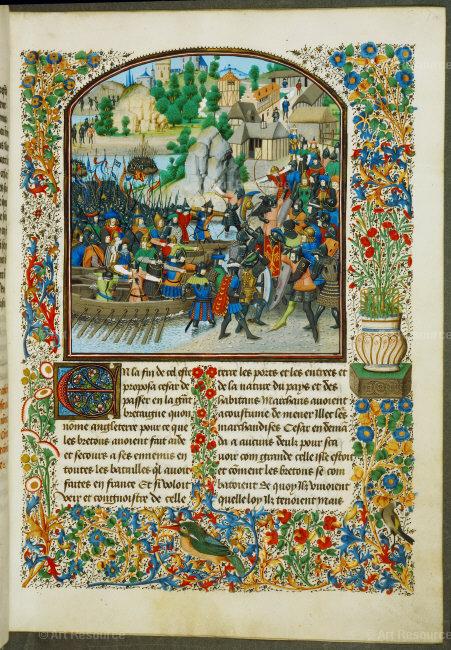 En la fin de cel esté
proposa cesar de
passer en la grāt
bretaigne quon
nōme angleterre pour ce que
les bretons auoient fait aide
et secours a ses ennemis en
toutes les batailles q̄l auoit
faittes en france Et si vouloit
veir et congnoistre de celle
terre les pors et les entrees et
de la nature du pays et des
habitans Marchans auoient
acoustume de mener illec les
marchandises Cesar en deman
da a aucuns deulx pour sca
uoir com grande celle isle estoit
et cōment les bretons se com
batoient De quoy ilz viuoient
quelle loy ilz tenoient Mais
© Art Resource
© Art Resource